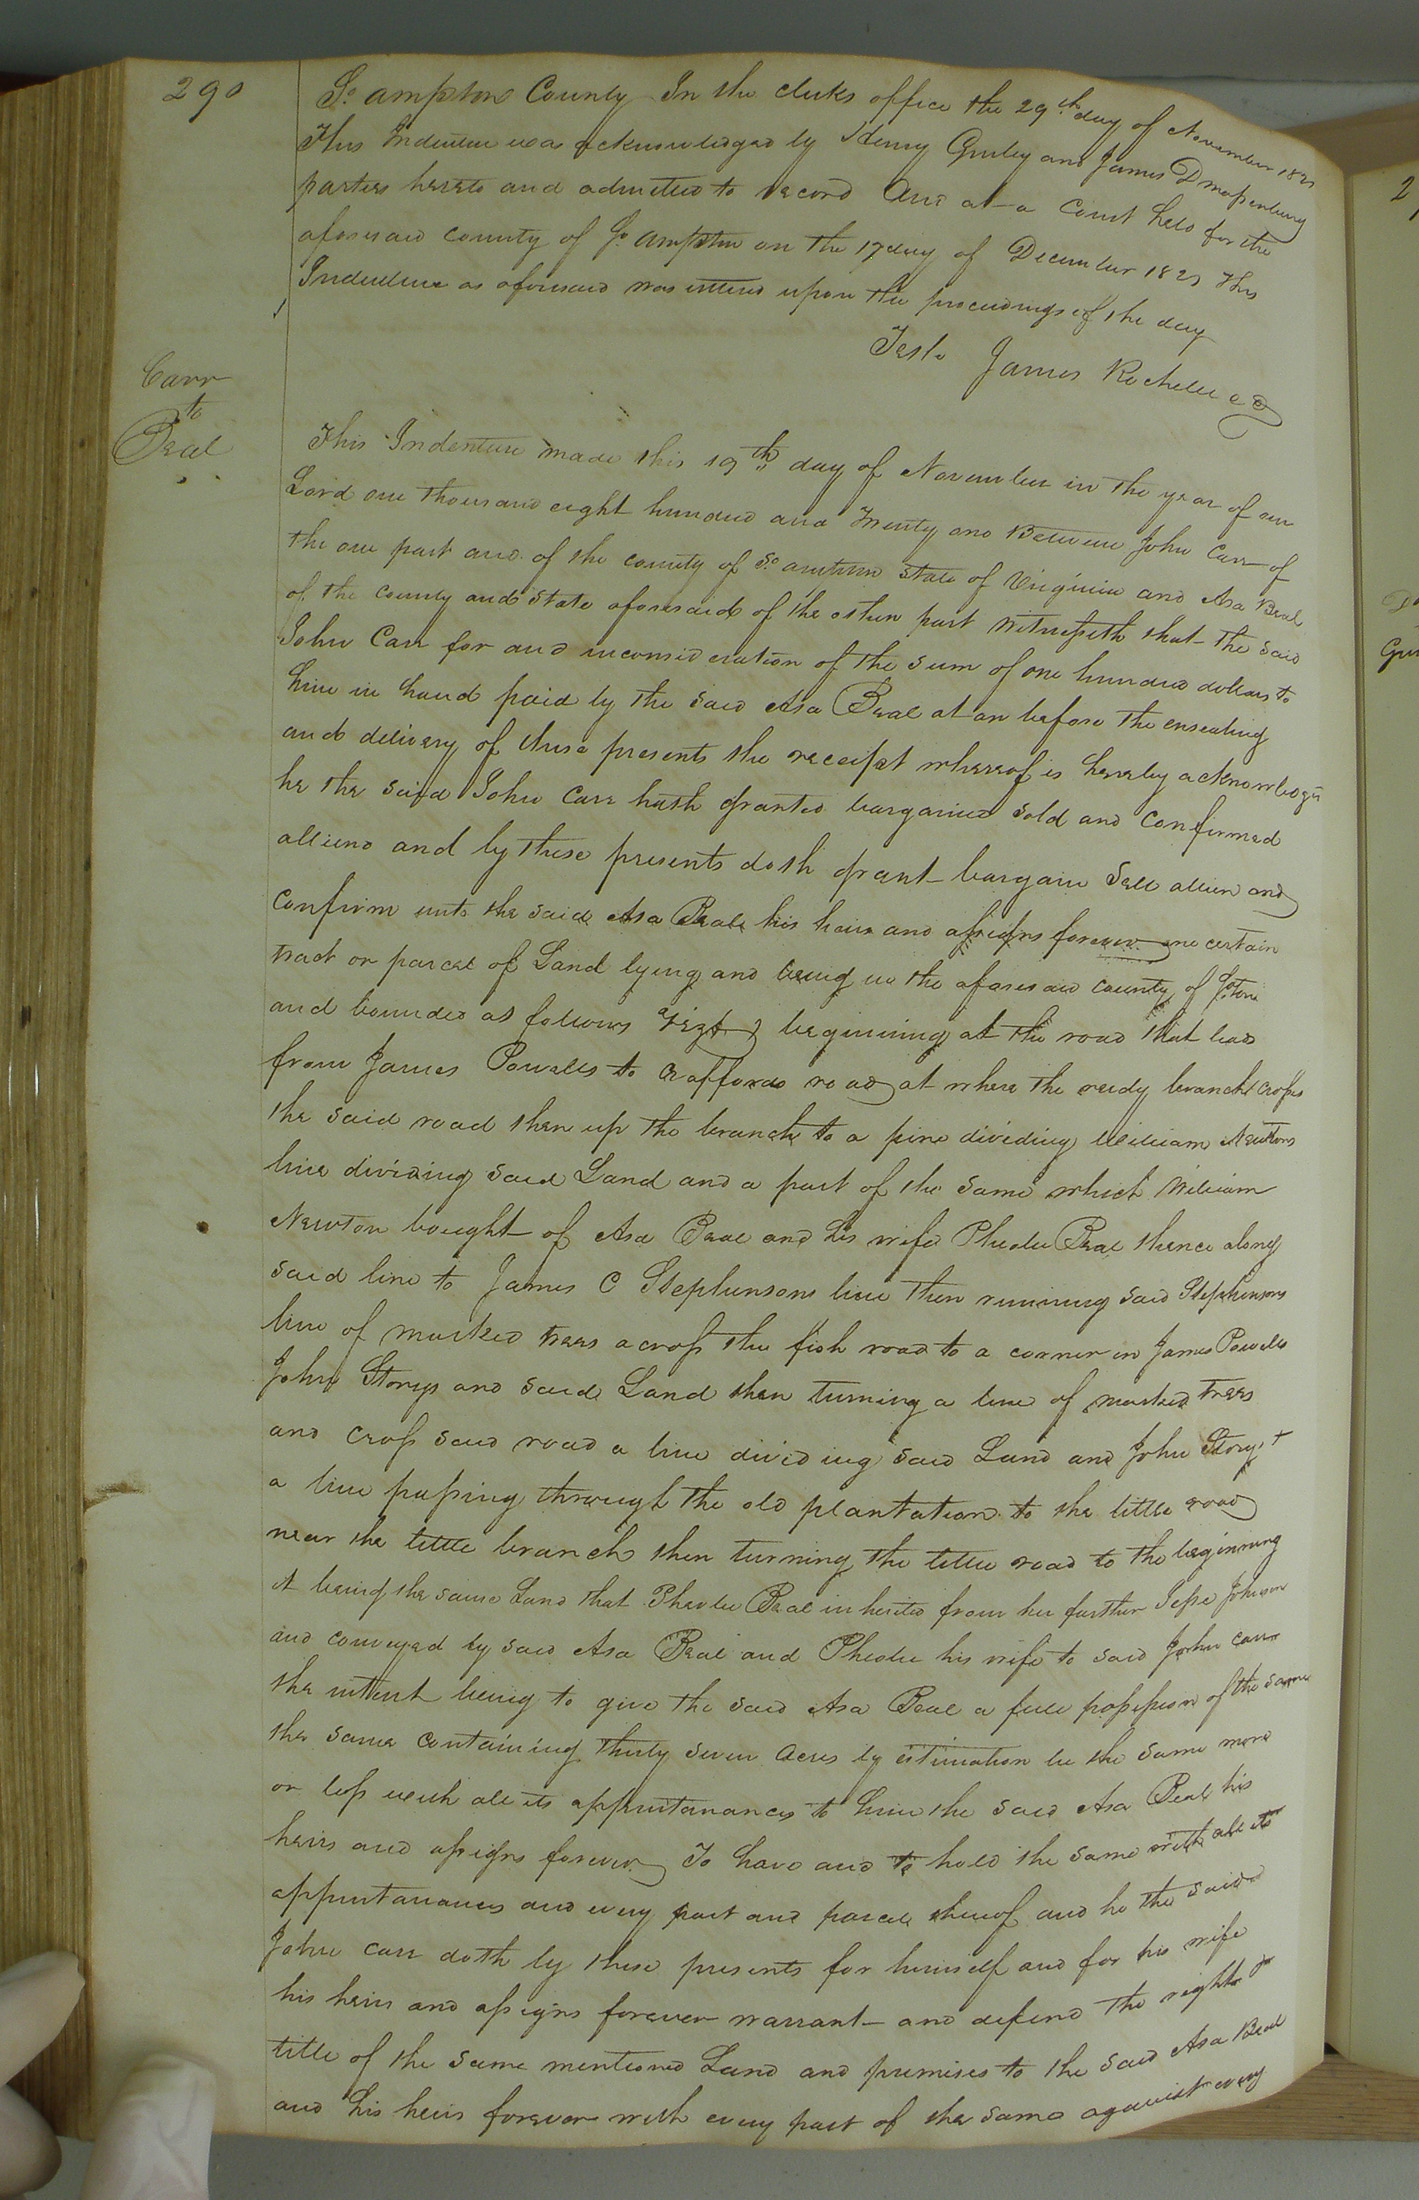 290
So ampton County In the clerks office the 29th day of November 1821
This Indenture was acknowledged by Henry Gurley and James D Massenburg
parties hereto and admitted to record And at a Court held for the
aforesaid county of So ampton on the 17 day of December 1821 This
Indenture as aforesaid was entered upon the proceedings of the day
Teste James Rochelle
Carr
to
Beal
This Indenture made this 19th day of November in the year of our
Lord one thousand eight hundred and Twenty one Between John Carr of
the one part and of the county of So amton State of Virginia and Asa Beal
of the County and State aforesaid of the other part Witnesseth that the said
John Carr for and inconsideration of the sum of one hundred dollars to
him in hand paid by the said Asa Beal at an before the ensealing
and delivery of these presents the receipt whereof is hereby acknowledged
he the said John Carr hath granted bargained sold and Confirmed
alliend and by these presents doth grant bargain Sell allien and
Confirm unto the said Asa Beal his heirs and assigns forever one certain
tract or parcel of Land lying and being in the aforesaid county of Soton
and bounded as follows vizt beginning at the road that leads
from James Powells to road at where the reedy branch crosses
the said road then up the branch to a pine dividing William Newtons
line dividing said Land and a part of the same which William
Newton bought of Asa Beal and his wife Pheobe Beal thence along
said line to James C Stephensons line then running said Stephensons
line of marked trees across the fish road to a corner in James Powells
John Storys and said Land then turning a line of marked trees
and cross said road a line dividing said Land and John Storys +
a line passing through the old plantation to the little road
near the little branch then turning the little road to the beginning
it being the same Land that Pheobe Beal inherited from her farther Jesse Johnson
and conveyed by said Asa Beal and Pheobe his wife to said John Carr
the intent being to give the said Asa Beal a full possession of the same
the same Containing thirty seven acres by estimation be the same more
or less with all its appurtanances to him the said Asa Beal his
heirs and assigns forever To have and to hold the same with all its
appurtanances and every part and parcel thereof and he the said
John Carr doth by these presents for himself and for his wife
his heirs and assigns forever warrant and defend the right
title of the same mentioned Land and premises to the said Asa Beal
and his heirs forever with every part of the same against every